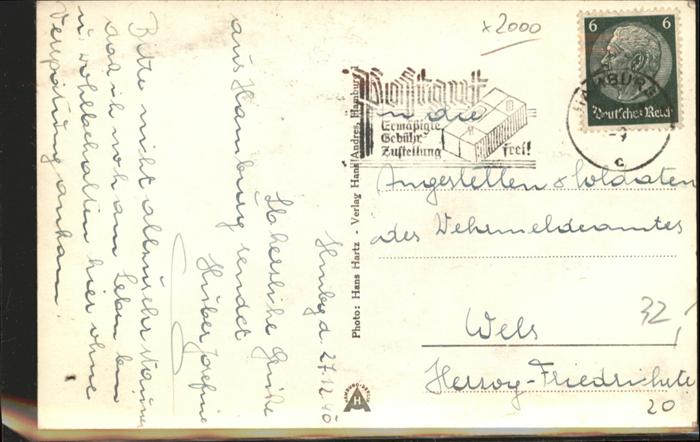 x2000
6 6
Deutsches Reich
HAMBURG
c
Postgut
Ermäßigte
Gebühr
Zustellung frei!
Angestellten & Soldaten
des Wehrmeldeamtes
Wels
Herzog-Friedrichstr
20
32,
Photo: Hans Hartz - Verlag Hans Andres, Hamburg 1
Hmbg d. 27.12.40
Herzliche Grüße
aus Hamburg sendet
Huber Josefine
Bitte nicht allzusehr staunen
daß ich noch am Leben bin
u. wohlbehalten hier ohne
Verspätung ankam.